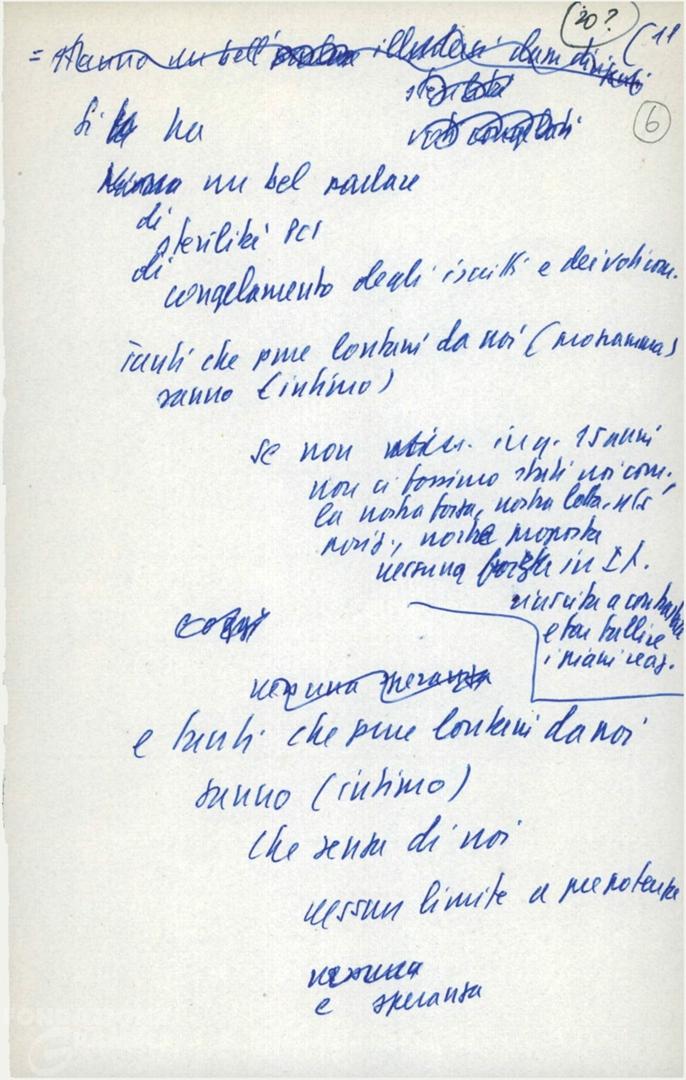 (20?
(11
6
= Hanno un bell' illudersi
Si ha
un bel parlare
di
sterilità PCI
di
congelamento degli iscritti e dei voti com.
Tanti che pure lontani da noi (programma)
sanno (intimo)
se non in q. 15 anni
non ci fossimo stati noi com.
la nostra forza, nostra lotta,
nostra proposta
nessuna forza in It.
riuscita a contrastare
e far fallire
i piani reaz.
nessuna speranza
e tanti che pure lontani da noi
sanno (intimo)
che senza di noi
nessun limite a prepotenza
nessuna
e speranza